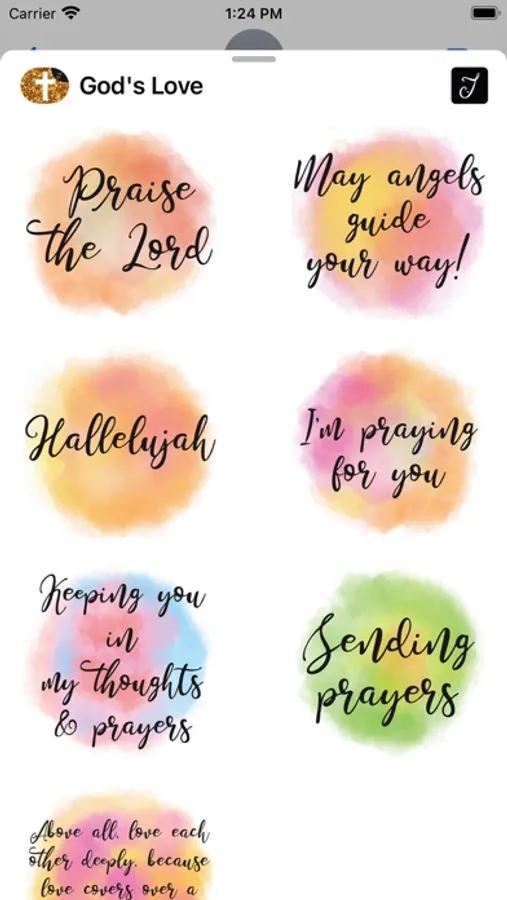 Carrier 1:24 PM
God's Love
Praise
the Lord
May angels
guide
your way!
Hallelujah
I'm praying
for you
Keeping you
in
my thoughts
& prayers
Sending
prayers
Above all, love each
other deeply, because
love covers over a